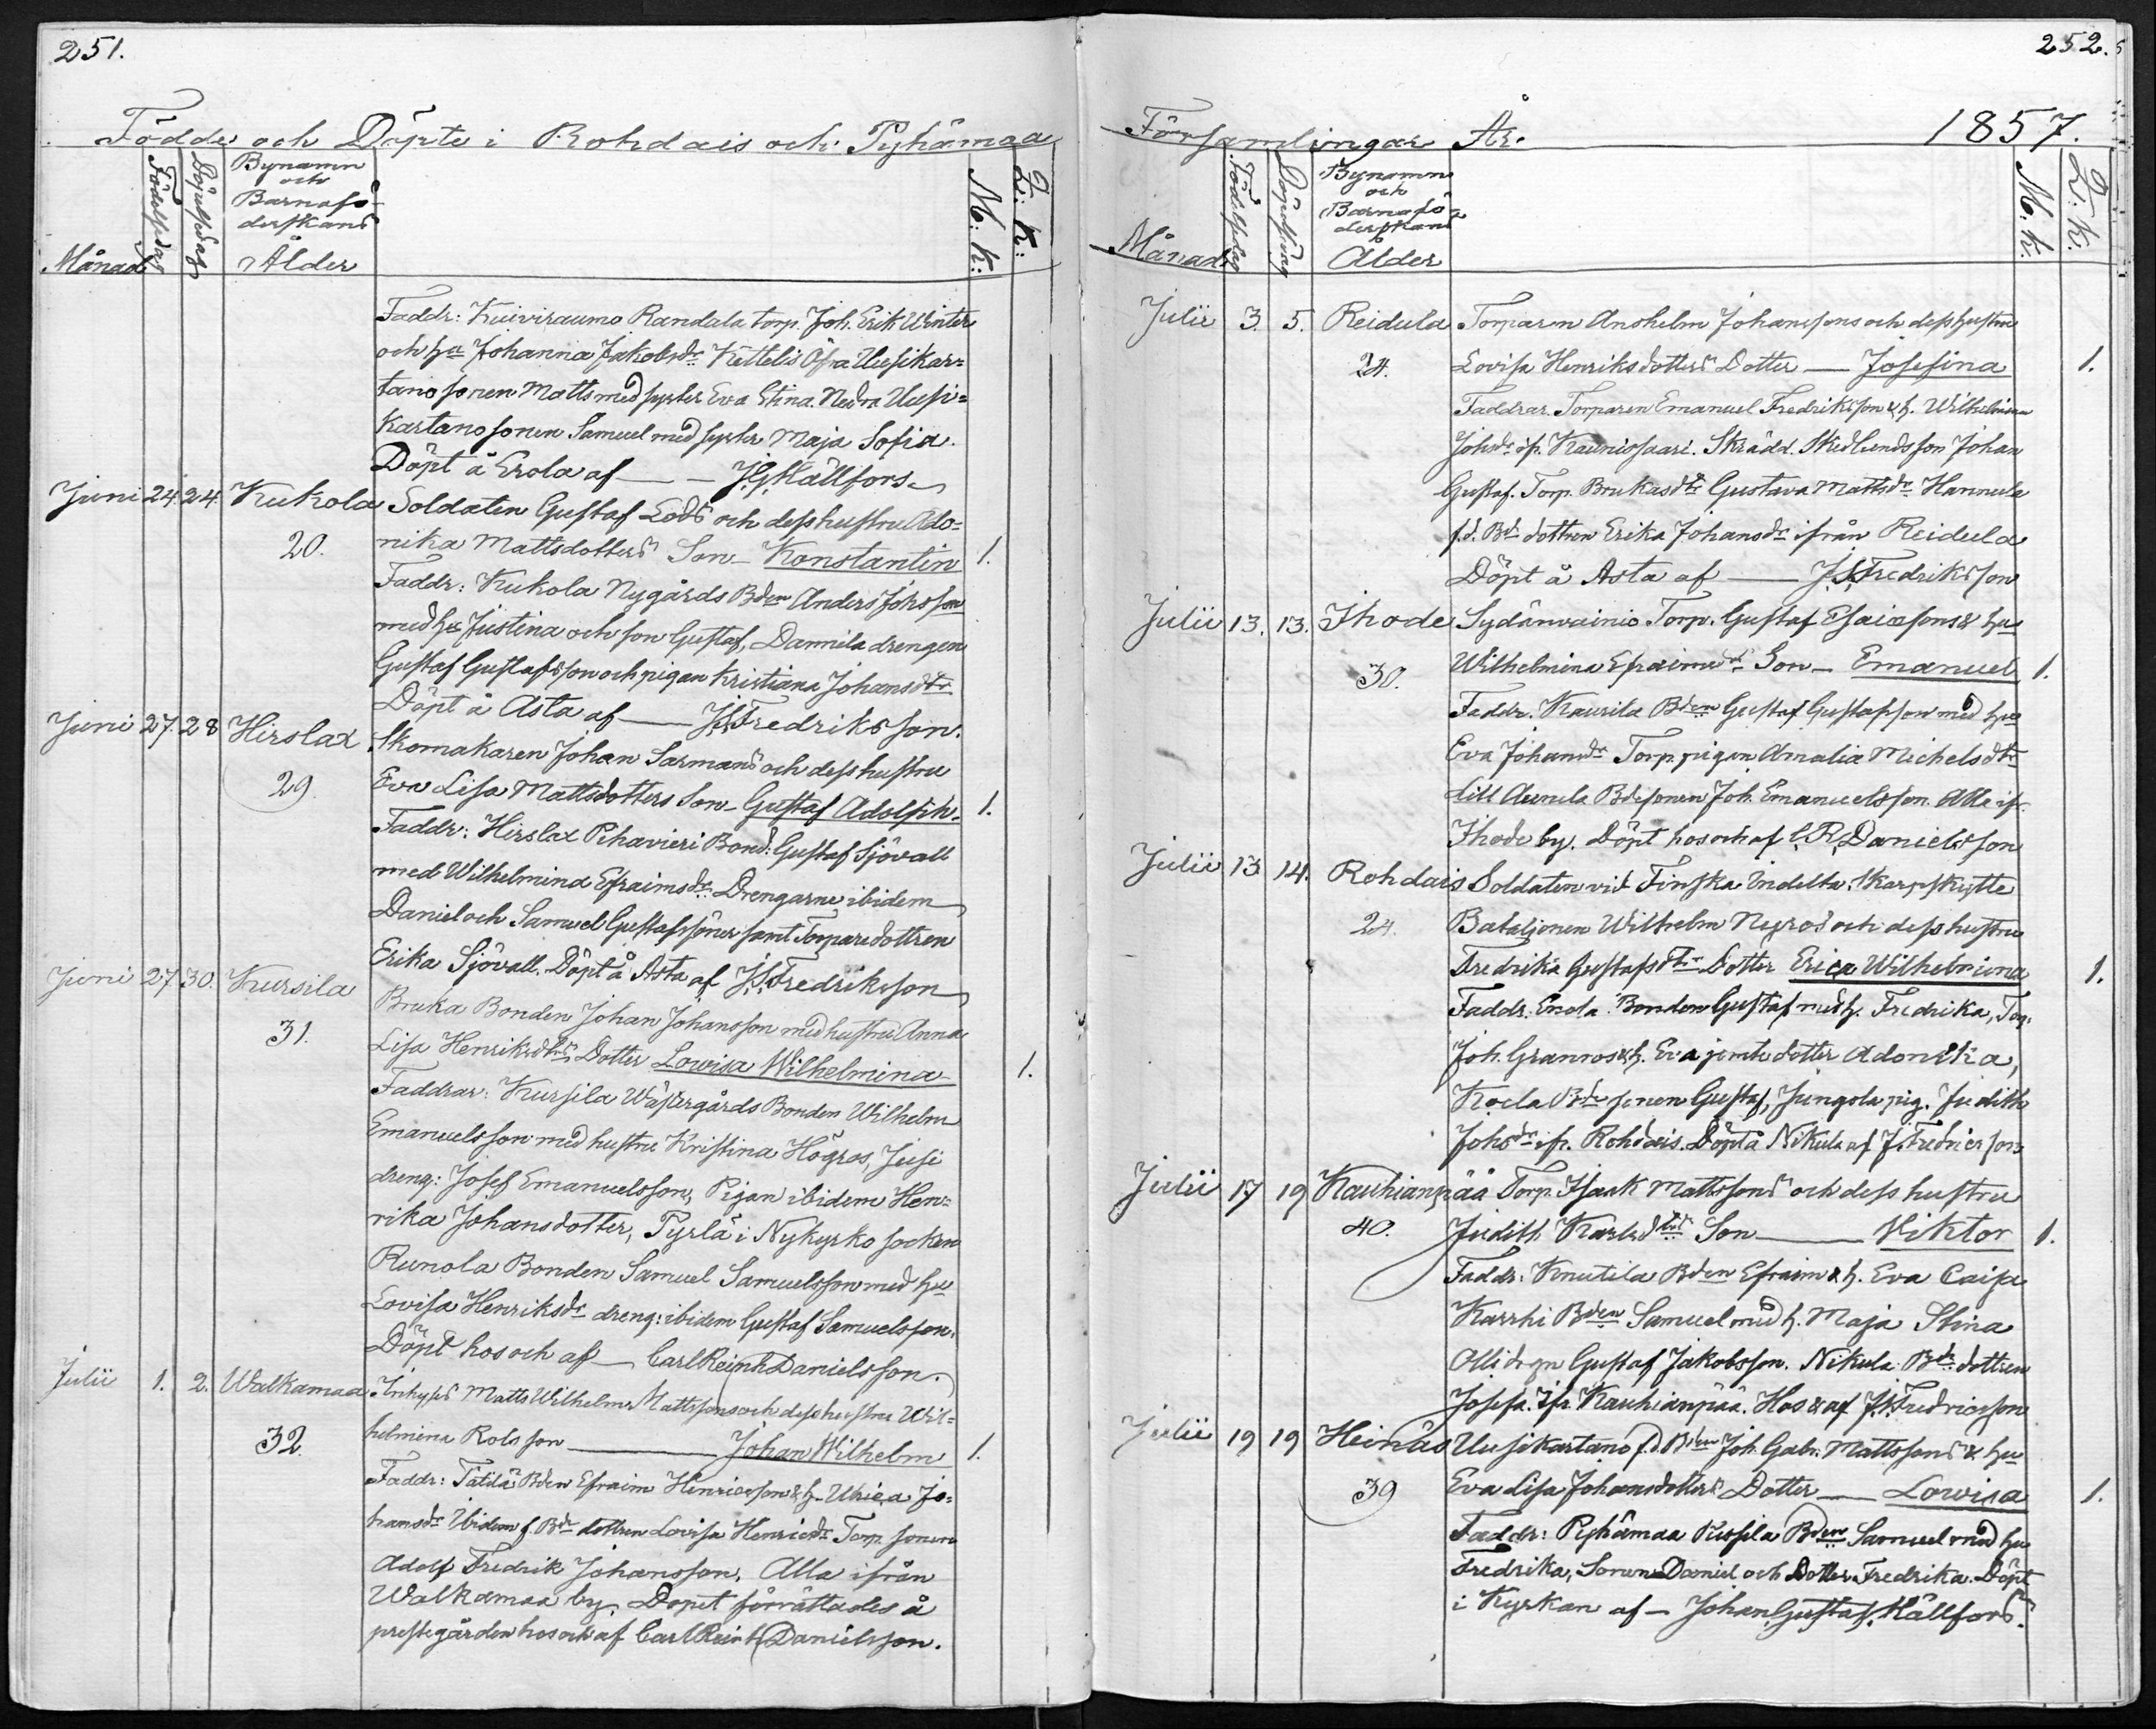 251.
Födde och Döpte i Rohdais och Pyhämaa
Månad Födelsdag Döpelsdag Bynamn och Barnaföderskans Ålder M: K: Q: K:
Faddr: Kuiviraumo Randala torp. Joh. Erik Winter
och hu Johanna Jakobsdr Kettelis Öfra Uusikar=
tano sonen Matts med syster Eva Stina. Nedra Uusi=
Kartano sonen Samuel med syster Maja Sofia.
Döpt å Erola af — J.G. Hällfors.
Juni 24. 24. Kukola Soldaten Gustaf Lods och dess hustru Ado=
20. nika Mattsdotters Son - Konstantin 1.
Faddr: Kukola Nygårds Bden Anders Johsson
med hu Justina och son Gustaf, Dannila drengen
Gustaf Gustafsson och pigan Kristiana Johansdtr
Döpt å Asta af — J.S. Fredriksson.
Juni 27. 28 Hirslax Skomakaren Johan Sarmans och dess hustru
29. Eva Lisa Mattsdotters Son - Gustaf Adolph. 1.
Faddr: Hirslax Pihavieri Bond: Gustaf Sjövall
med Wilhelmina Efraimsdr. Drengarne ibidem
Daniel och Samuel Gustafssöner samt Torparedottren
Erika Sjövall. Döpt å Asta af J.S. Fredriksson
Juni 27. 30. Kursila Bruka Bonden Johan Johansson med hustru Anna
31. Lisa Henriksdtrs Dotter Lowisa Wilhelmina 1.
Faddrar: Kursila Wästergårds Bonden Wilhelm
Emanuelsson med hustru Kristina Högras, Jusi
dreng: Josef Emanuelsson, Pigan ibidem Hen=
rika Johansdotter, Pyrlä i Nykyrko socken
Runola Bonden Samuel Samuelsson med hu
Lovisa Henriksdr dreng: ibidem Gustaf Samuelsson.
Döpt hos och af — Carl Reinh Danielsson.
Julii 1. 2. Walkamaa Inhyses Matts Wilhelm Mattssons och dess hustru Wil=
32. helmina Rols son — Johan Wilhelm 1.
Faddr: Tätilä Bden Efraim Henricsson & h. Ulrica Jo=
hansdr Ibidem f. Bdr dottren Lovisa Henricsdr Torp. sonen
Adolf Fredrik Johansson. Alla ifrån
Walkamaa by. Dopet förrättades å
prestegården hos och af Carl Reinh Danielsson.
252.
Församlingar År. 1857.
Månad Födelsdag Döpelsdag Bynamn och Barnaföderskans Ålder M: K: Q: K:
Julii 3. 5. Reidula Torparen Anshelm Johanssons och dess hustru
24. Lovisa Henriksdotters Dotter — Josefina 1.
Faddrar. Torparen Emanuel Fredriksson & h. Wilhelmina
Johsdr ifr. Kaunissaari. Skrädd. Skedlundsson Johan
Gustaf. Torp. Brukasdtr Gustava Mattsdr Hannula
f.d. Bds dottren Erika Johansdr ifrån Reidula
Döpt å Asta af — J.S. Fredriksson
Julii 13. 13. Ihode Sydänvainio Torp. Gustaf Esaiassons & hus
30. Wilhelmina Efraimsdrs Son — Emanuel 1.
Faddr. Kaurila Bden Gustaf Gustafsson med hu
Eva Johansdr Torp. pigan Amalia Michelsdtr
Lill Aunula Bdesonen Joh. Emanuelsson. Alla ifr.
Ihode by. Döpt hos och af C. R. Danielsson
Julii 13 14. Rohdais Soldaten vid Finska Indelta Skarpskytte
24. Bataljonen Wilhelm Nyros och dess hustru
Fredrika Gustafsdtrs Dotter Erica Wilhelmina 1.
Faddr. Enola Bonden Gustaf med h. Fredrika, Torp.
Joh. Granros & h. Eva jemte dotter Adonika,
Koela Bde sonen Gustaf, Jungola pig. Judith
Johsdr ifr. Rohdais. Döpt å Nikula af J. Fredricsson
Julii 17 19 Kauhianpää Torp. Isaak Mattssons och dess hustru
40. Judith Karlsdtrs Son — Viktor 1.
Faddr: Knutila Bden Efraim & h. Eva Caisa
Karrhi Bden Samuel med h. Maja Stina
Olli drgn Gustaf Jakobsson. Nikula Bde dottren
Josefa. Ifr. Kauhianpää. Hos & af J.S. Fredricsson
Julii 19 19 Heinäs Uusikartano f.d. Bden Joh. Gabr. Mattssons & hu
39 Eva Lisa Johansdotters Dotter — Lowisa 1.
Faddr: Pyhämaa Kussila Bden Samuel med hu
Fredrika, Sonen Daniel och Dotter Fredrika. Döpt
i Kyrkan af — Johan Gustaf Hällfors.